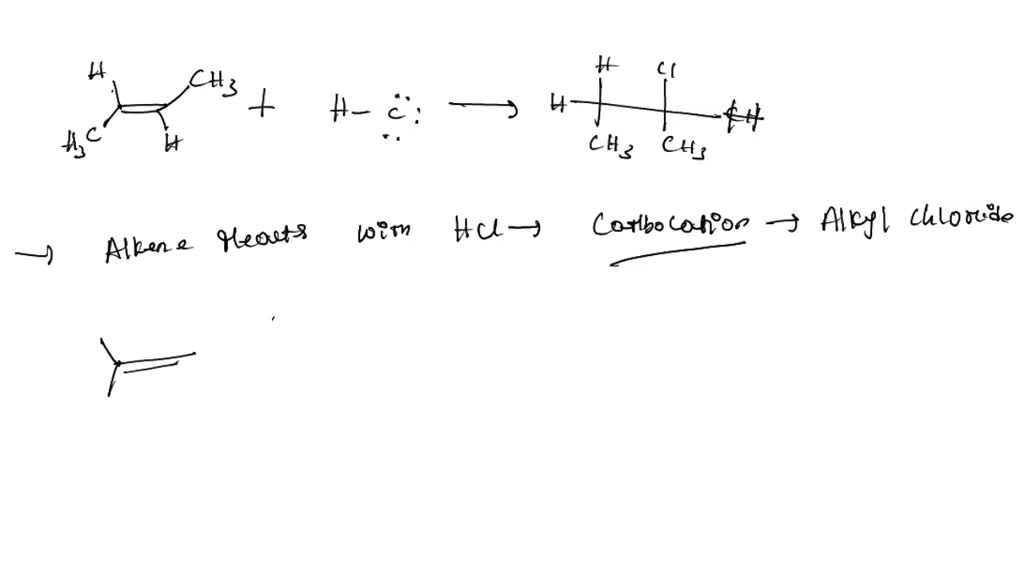 H CH3 + H - C → H H Cl
H3C H CH3 CH3
→ Alkene Reacts with HCl → Carbocation → Alkyl chloride